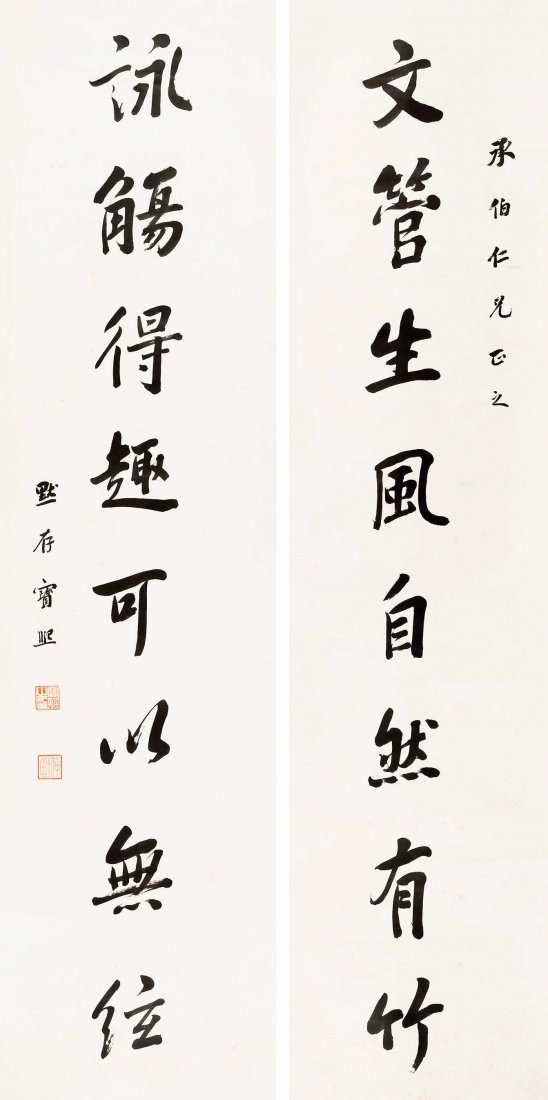 承伯仁兄正之
文管生風自然有竹
詠觴得趣可以無絃
默存寶熙